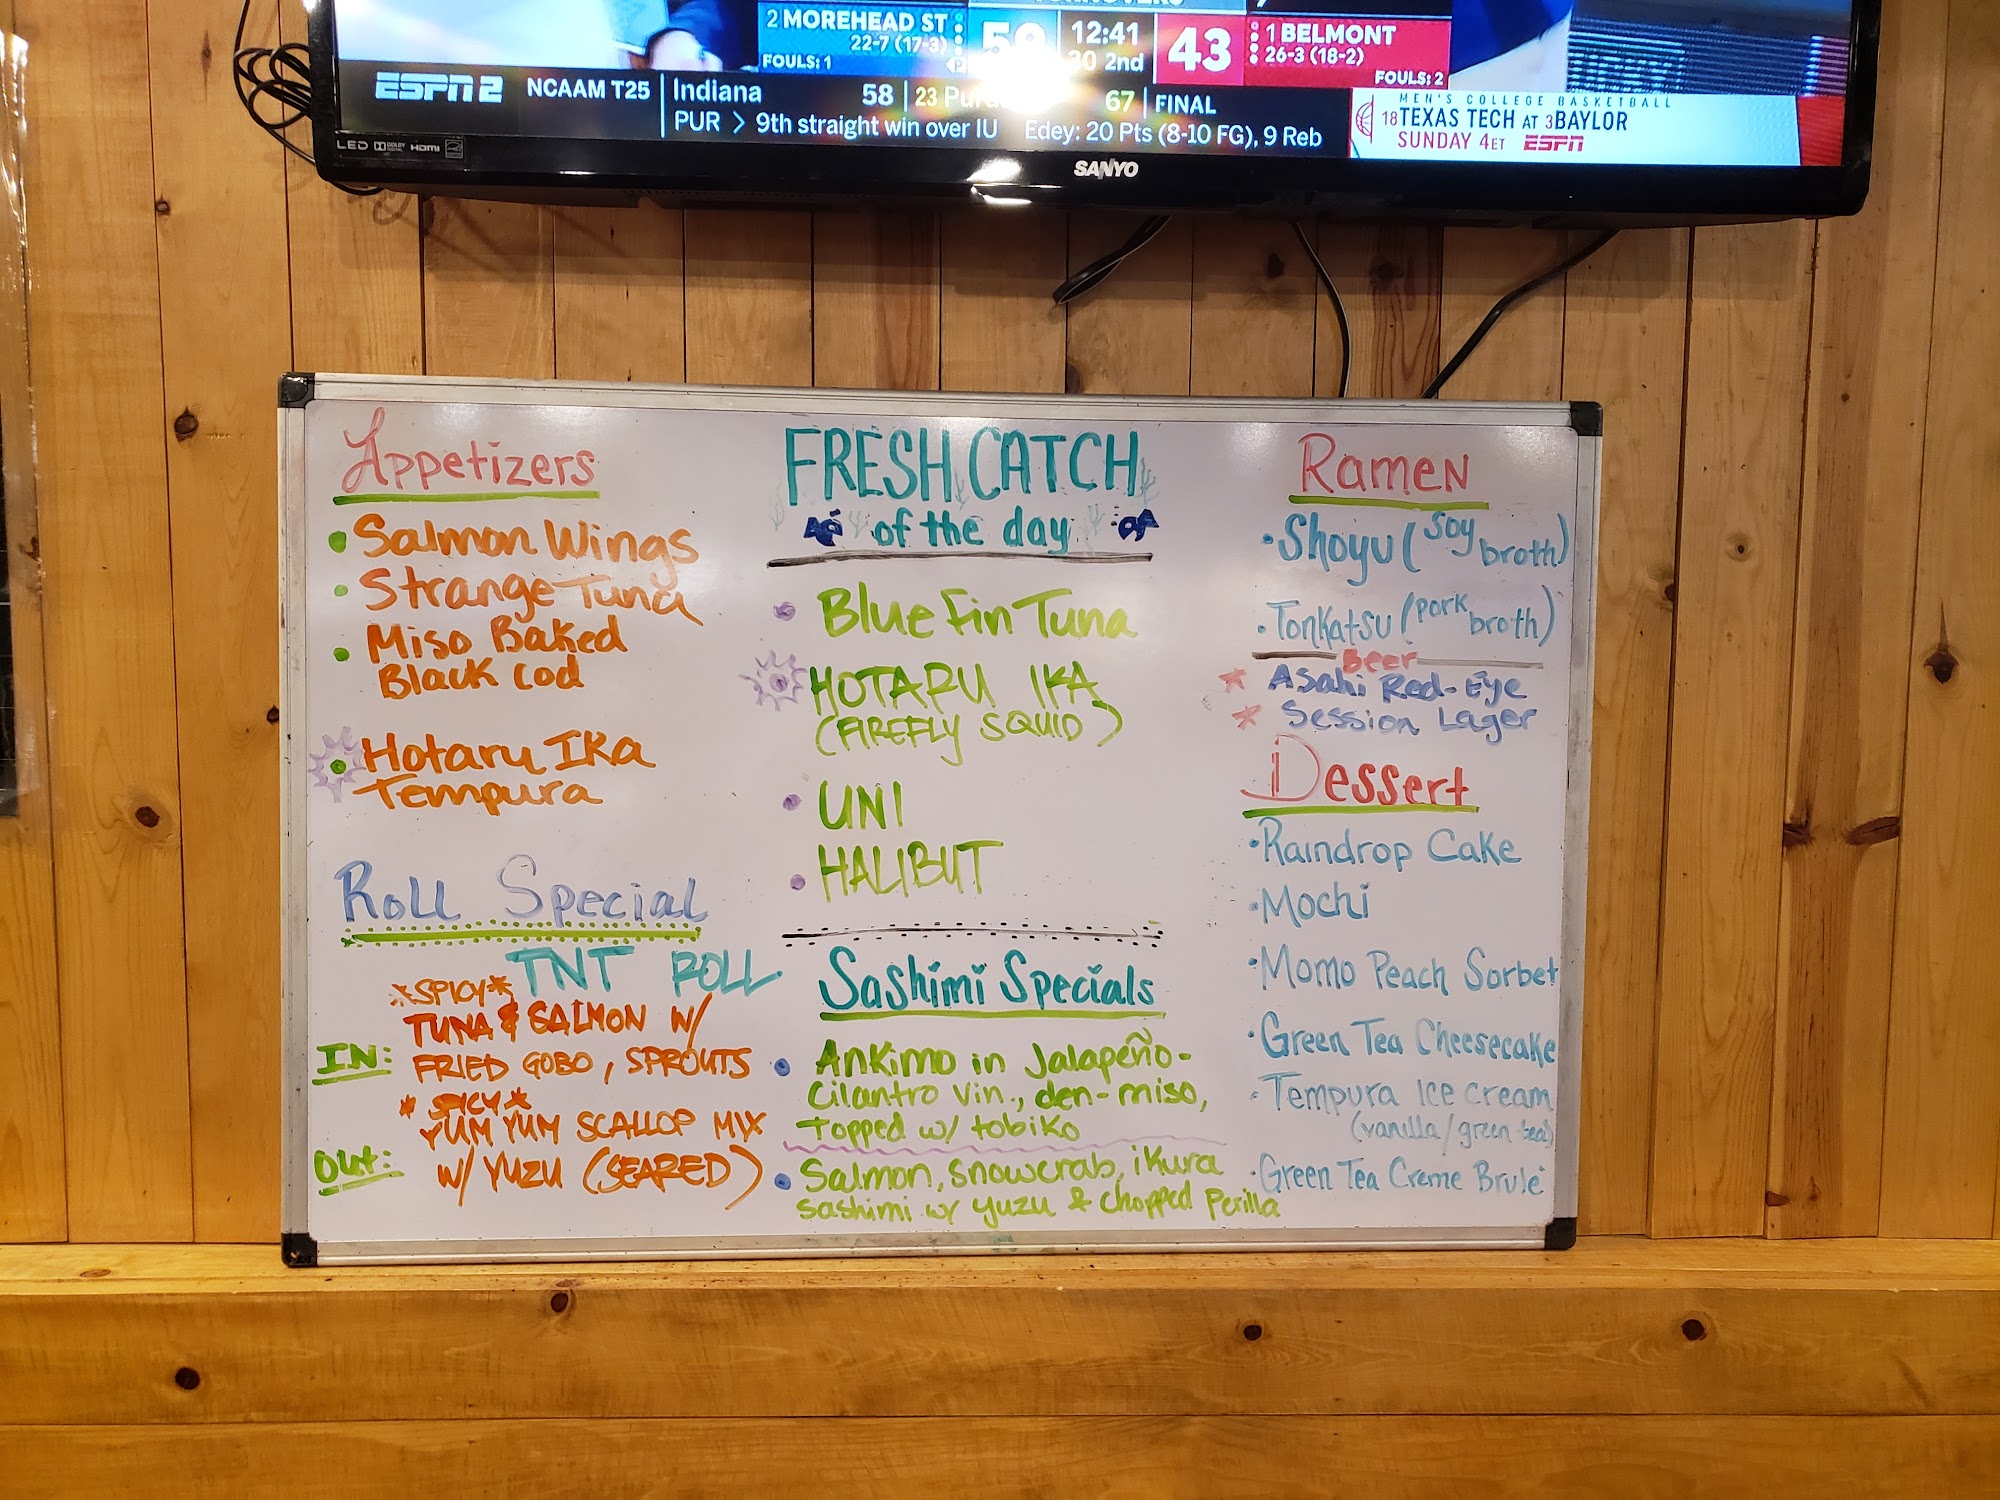 2 MOREHEAD ST
22-7 (17-3)
FOULS: 1
12:41
2nd
43
1 BELMONT
26-3 (18-2)
FOULS: 2
ESPN 2
NCAAM T25
Indiana 58
23 67
FINAL
PUR > 9th straight win over IU Edey: 20 Pts (8-10 FG), 9 Reb
MEN'S COLLEGE BASKETBALL
18 TEXAS TECH AT 3 BAYLOR
SUNDAY 4ET ESPN
LED DOLBY HDMI
SANYO
Appetizers
Salmon Wings
Strange Tuna
Miso Baked
Black Cod
Hotaru Ika
Tempura
Roll Special
TNT ROLL
IN:
*SPICY*
TUNA & SALMON W/
FRIED GOBO, SPROUTS
Out:
*SPICY*
YUM YUM SCALLOP MIX
W/ YUZU (SEARED)
FRESH CATCH
of the day
Blue Fin Tuna
HOTARU IKA
(FIREFLY SQUID)
UNI
HALIBUT
Sashimi Specials
Ankimo in Jalapeño-
Cilantro Vin., den-miso,
Topped w/ tobiko
Salmon, snowcrab, ikura
Sashimi w/ yuzu & chopped Perilla
Ramen
Shoyu (soy broth)
Tonkatsu (pork broth)
Beer
* Asahi Red-Eye
* Session Lager
Dessert
Raindrop Cake
Mochi
Momo Peach Sorbet
Green Tea Cheesecake
Tempura Ice cream
(vanilla/green tea)
Green Tea Creme Brulé